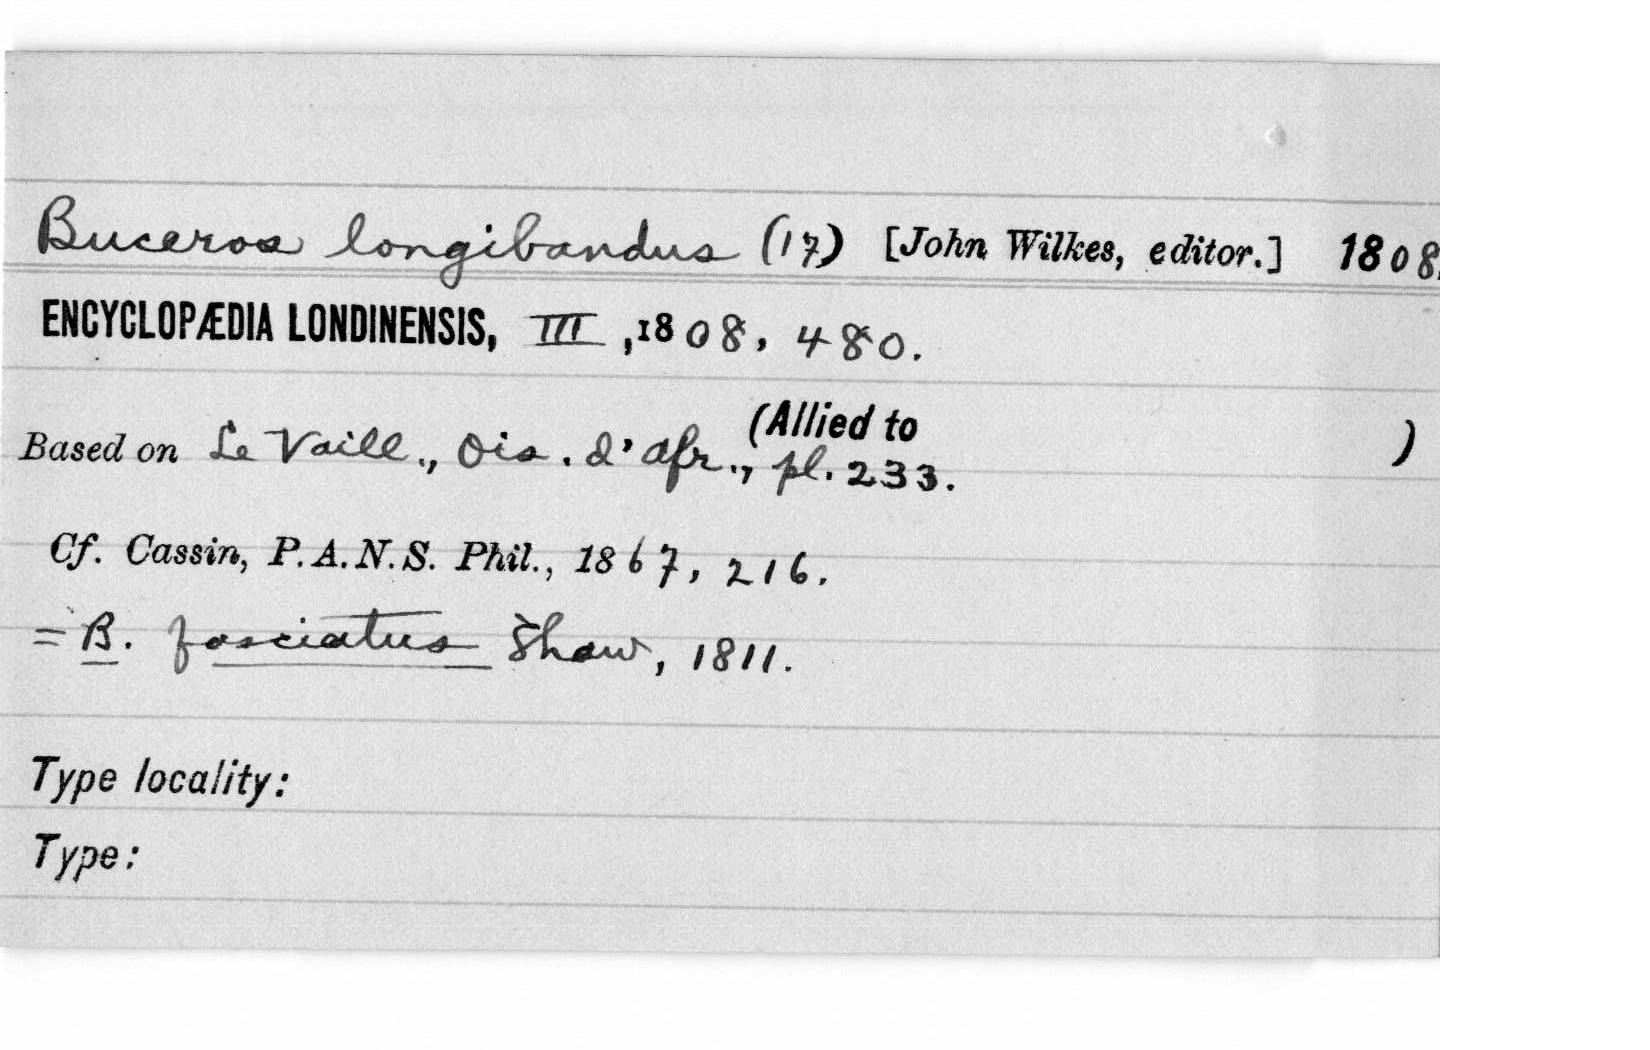 Buceros longibandus (17) [John Wilkes, editor.] 1808.
ENCYCLOPÆDIA LONDINENSIS, III, 1808, 480.
(Allied to )
Based on Le Vaill., Ois. d'Afr., pl. 233.
Cf. Cassin, P.A.N.S. Phil., 1867, 216.
= B. fasciatus Shaw, 1811.
Type locality:
Type: